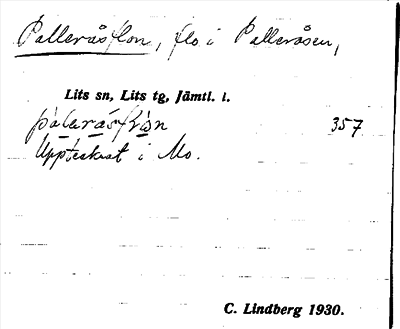 Palleråsflon, flo i Palleråsen,
Lits sn, Lits tg, Jämtl. l.
357
Upptecknat i Mo.
C. Lindberg 1930.